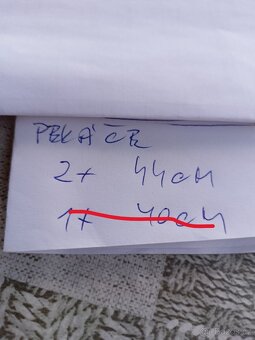 PEKÁČE
2x 44cm
1x 40cm